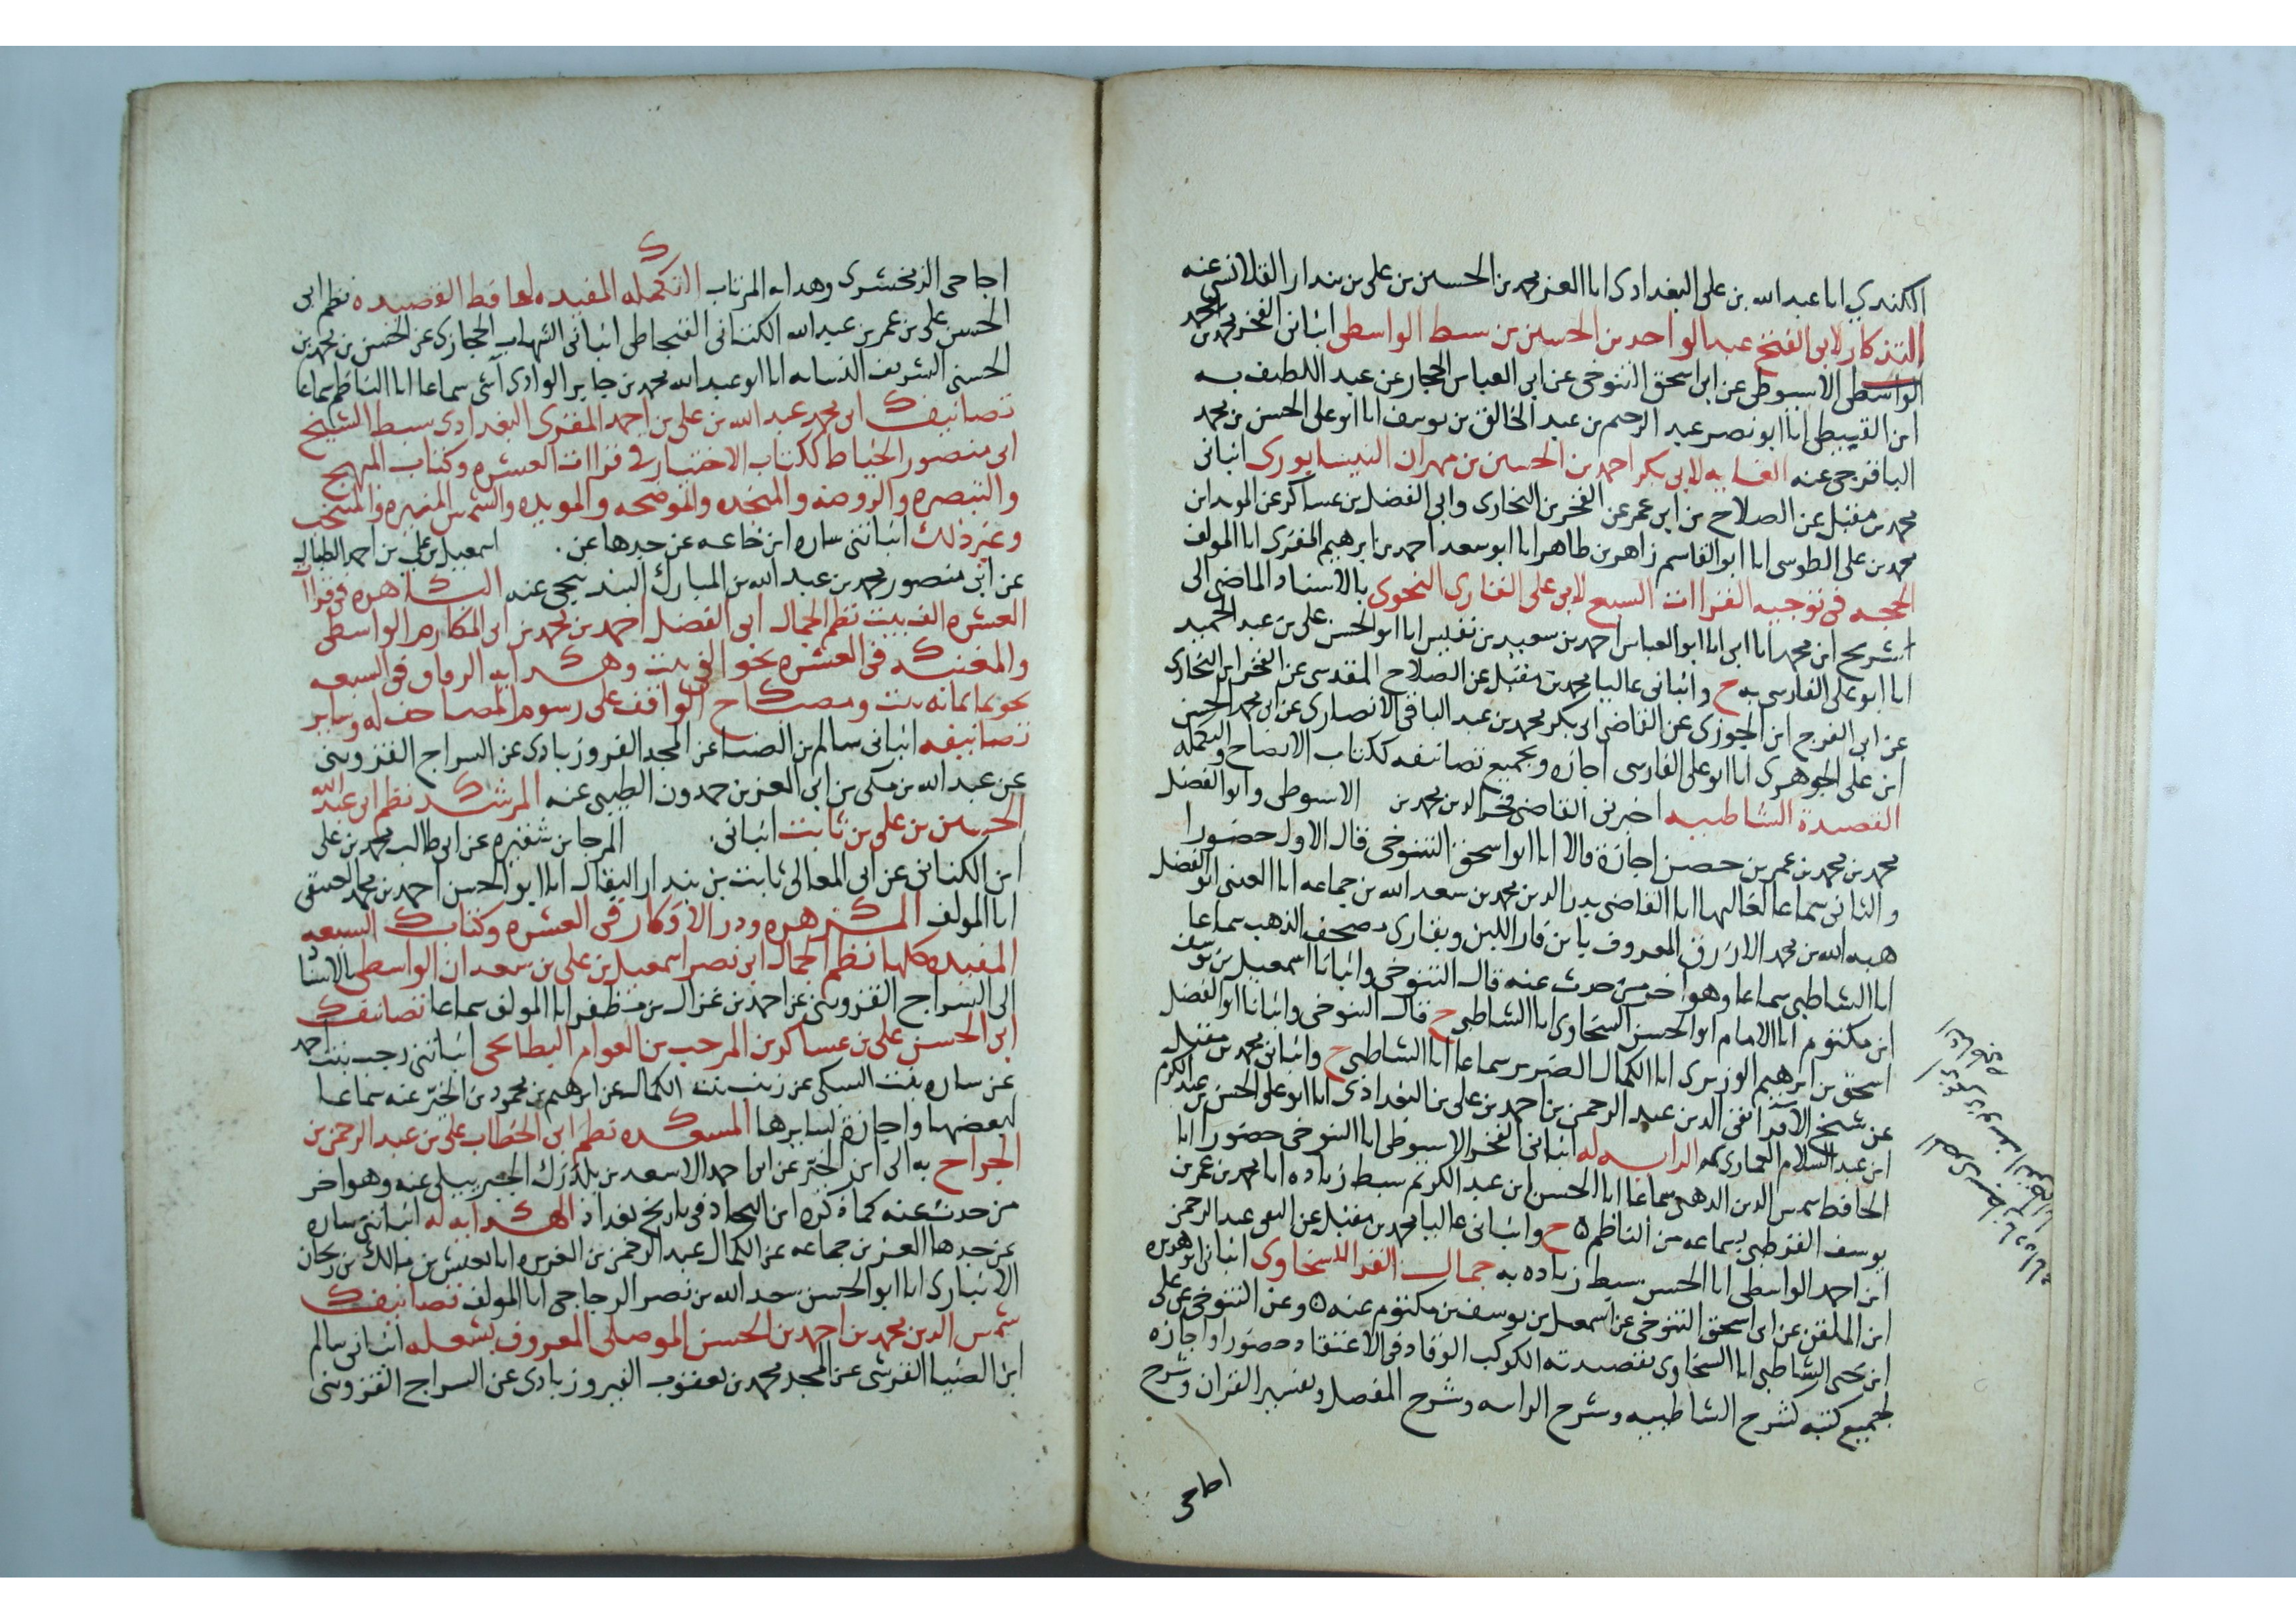 الكندي انا عبد الله بن على البغدادى انا العز محمد بن الحسين بن على بن بندار القلانسى عنه
التذكار لابى الفتح عبد الواحد بن الحسين بن سيطا الواسطى انبانى الفخر محمد بن محمد
الواسطى الاسيوطى عن ابى اسحق التنوخى عن ابى العباس الحجار عن عبد اللطيف به
ابن القبيطى انا ابو نصر عبد الرحيم بن عبد الخالق بن يوسف انا ابو على الحسن بن محمد
الباقرحى عنه الغايه لابى بكر احمد بن الحسين بن مهران النيسابورى انبانى
محمد بن مقبل عن الصلاح بن ابى عمر عن الفخر بن البخارى وابى الفضل بن عساكر عن المويد ابن
محمد بن على الطوسى انا ابو القاسم زاهر بن طاهر انا ابو سعد احمد بن ابرهيم المقرى انا المولف
الحجه فى توجيه القراات السبع لابى على الفارسى النحوى بالاسناد الماضى الى
شريح ابن محمد انا ابى انا ابو العباس احمد بن سعيد بن نفيس انا ابو الحسن على بن عبد الحميد
انا ابو على الفارسى به ح وانبانى عاليا محمد بن مقبل عن الصلاح المقدسى عن الفخر ابن البخارى
عن ابى الفرج ابن الجوزى عن القاضى ابى بكر محمد بن عبد الباقى الانصارى عن ابى محمد الحسن
ابن على الجوهرى انا ابو على الفارسى اجازه وبجميع تصانيفه ككتاب الايضاح والتكمله
القصيدة الشاطبيه اخبرنى القاضى فخر الدين محمد بن الاسيوطى وابو الفضل
محمد بن محمد بن عمر بن حصن اجازة قالا انا ابو اسحق التنوخى قال الاول حضورا
والثانى سماعا لغالبها انا القاضى بدر الدين محمد بن سعد الله بن جماعه انا المعنى ابو الفضل
هبه الله بن محمد الازرق المعروف بابن قار اللبن وبقارى مصحف الذهب سماعا
انا الشاطبى سماعا وهو اخر من حدث عنه قال التنوخى وانبانا اسمعيل بن يوسف
ابن مكتوم انا الامام ابو الحسن السخاوى انا الشاطبى ح قال التنوخى وانبانا ابو الفضل
اسحق بن ابرهيم الوزيرى انا الكمال الضرير سماعا انا الشاطبى ح وانبانى محمد بن مقبل
عن شيخ الاقرا تقى الدين عبد الرحمن بن احمد بن على بن البغدادى انا ابو على الحسن بن عبد الكريم
ابن عبد السلام الغمارى به الرايه له انبانى الفخر الاسيوطى انا التنوخى حضورا انا
الحافظ شمس الدين الذهبى سماعا انا الحسن ابن عبد الكريم سبط زياده انا محمد بن عمر بن
يوسف القرطبى بسماعه من الناظم ح وانبانى عاليا محمد بن مقبل عن التقى عبد الرحمن
ابن احمد الواسطى انا الحسن سبط زياده به جمال القرا للسخاوى انبانى ابو هريره
ابن الملقن عن ابى اسحق التنوخى عن اسمعيل بن يوسف بن مكتوم عنه وعن التنوخى عن على
ابن يحيى الشاطبى انا السخاوى بقصيدته الكوكب الوقاد فى الاعتقاد حضورا واجازه
لجميع كتبه كشرح الشاطبيه وشرح الرايه وشرح المفصل وتفسير القران وشرح
احاجى
احاجى الزمخشرى وهدايه المرتاب التكمله المفيده لحافظ القصيده نظم ابى
الحسن على بن عمر بن عبد الله الكتانى القيجاطى انبانى الشهاب الحجازى عن الحسن بن محمد بن
الحسنى الشريف النسابه انا ابو عبد الله محمد بن جابر الوادى آشى سماعا انا الناظم سماعا
تصانيف ابى محمد عبد الله بن على بن احمد المقرى البغدادى سبط الشيخ
ابى منصور الخياط ككتاب الاختيار فى قراات العشره وكتاب المبهج
والتبصره والروضه والمنجده والموضحه والمويده والشمس المنيره والمنتخب
وغير ذلك انباتنى ساره ابن جماعه عن جدها عن . اسمعيل بن على بن احمد الطبال
عن ابى منصور محمد بن عبد الله بن المبارك البندنيجى عنه الشاهره فى قراآ
العشره الف بيت نظم الجمال ابى الفضل احمد بن محمد بن ابى المكارم الواسطى
والمغنيه فى العشره نحو الفى بيت وهدايه الرواه فى السبعه
نحو ثمانمائه بيت ومصباح الواقف على رسوم المصاحف له وساير
تصانيفه انبانى سالم بن الضيا عن المجد الفروزبادى عن السراج القزوينى
عن عبد الله بن مكى بن ابى العز بن حمدون الطيبى عنه المرشد نظم ابى عبد الله
الحسين بن على بن ثابت انبانى . المرجا بن شقيره عن ابى طالب محمد بن على
ابن الكتانى عن ابى المعالى ثابت بن بندار البقال انا ابو الحسن احمد بن محمد العتيقى
انا المولف المزهره ودر الافكار فى العشره وكتاب السبعه
المفيده كلها نظم الجمال ابى نصر اسمعيل بن على بن سعدان الواسطى بالاسنا
الى السراج القزوينى عن احمد بن غزال بن مظفر انا المولف سماعا تصانيف
ابى الحسن على بن عساكر بن المرحب بن العوام البطايحى انباتنى رجب بنت احمد
عن ساره بنت السبكى عن زينب بنت الكمال عن ابرهيم بن محمود بن الخير عنه سماعا
لبعضها واجازة لسايرها المسعده نظم ابى الخطاب على بن عبد الرحمن بن
الجراح به الى ابن الخير عن ابى احمد الاسعد بن يلدرك الجبريلى عنه وهو اخر
من حدث عنه كما ذكره ابن النجار فى تاريخ بغداد الهدايه له انباتنى ساره
عن جدها العز بن جماعه عن الكمال عبد الرحمن بن الفويره انا بعيش بن مالك بن ريحان
الانبارى انا ابو الحسن سعد الله بن نصر الدجاجى انا المولف تصانيف
شمس الدين محمد بن احمد بن الحسن الموصلى المعروف بشعله انبانى سالم
ابن الضيا القرشى عن المجد محمد بن يعقوب الفيروزبادى عن السراج القزوينى